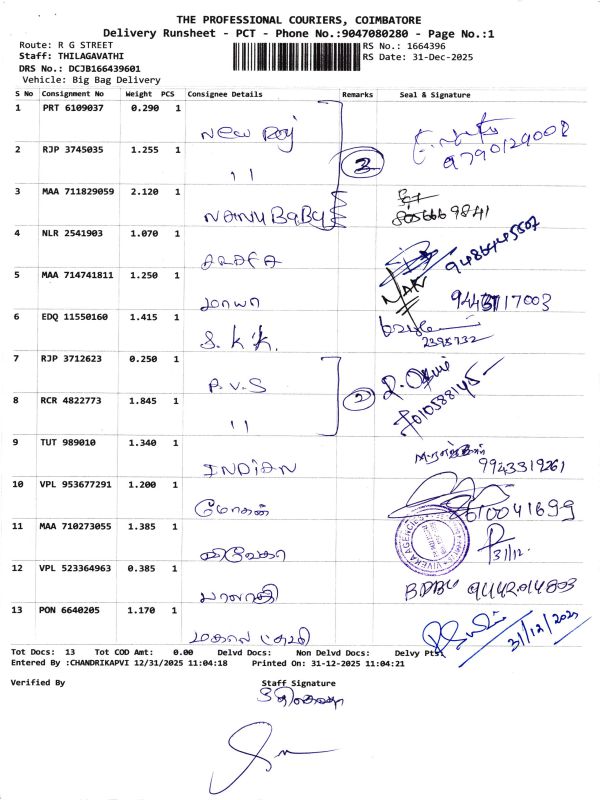 THE PROFESSIONAL COURIERS, COIMBATORE
Delivery Runsheet - PCT - Phone No.:9047080280 - Page No.:1
Route: R G STREET
RS No.: 1664396
Staff: THILAGAVATHI
RS Date: 31-Dec-2025
DRS No.: DCJB166439601
Vehicle: Big Bag Delivery
S No Consignment No Weight PCS Consignee Details Remarks Seal & Signature
1 PRT 6109037 0.290 1 New Roj 9790129008
2 RJP 3745035 1.255 1 ll 2
3 MAA 711829059 2.120 1 NANU BABY 805666 9841
4 NLR 2541903 1.070 1 ARAFA 9486445507
5 MAA 714741811 1.250 1 மாயா 9443717003
6 EDQ 11550160 1.415 1 S. K K. 2395732
7 RJP 3712623 0.250 1 P.V.S
8 RCR 4822773 1.845 1 ll 2 7010588145
9 TUT 989010 1.340 1 INDIAN 9943319261
10 VPL 953677291 1.200 1 மோகன் 8010041699
11 MAA 710273055 1.385 1 விவேகா VIVEKA AGENCIES 31/12.
12 VPL 523364963 0.385 1 பாலாஜி 9442014803
13 PON 6640205 1.170 1 மகாலட்சுமி 31/12/2025
Tot Docs: 13 Tot COD Amt: 0.00 Delvd Docs: Non Delvd Docs: Delvy Pts:
Entered By :CHANDRIKAPVI 12/31/2025 11:04:18 Printed On: 31-12-2025 11:04:21
Verified By Staff Signature